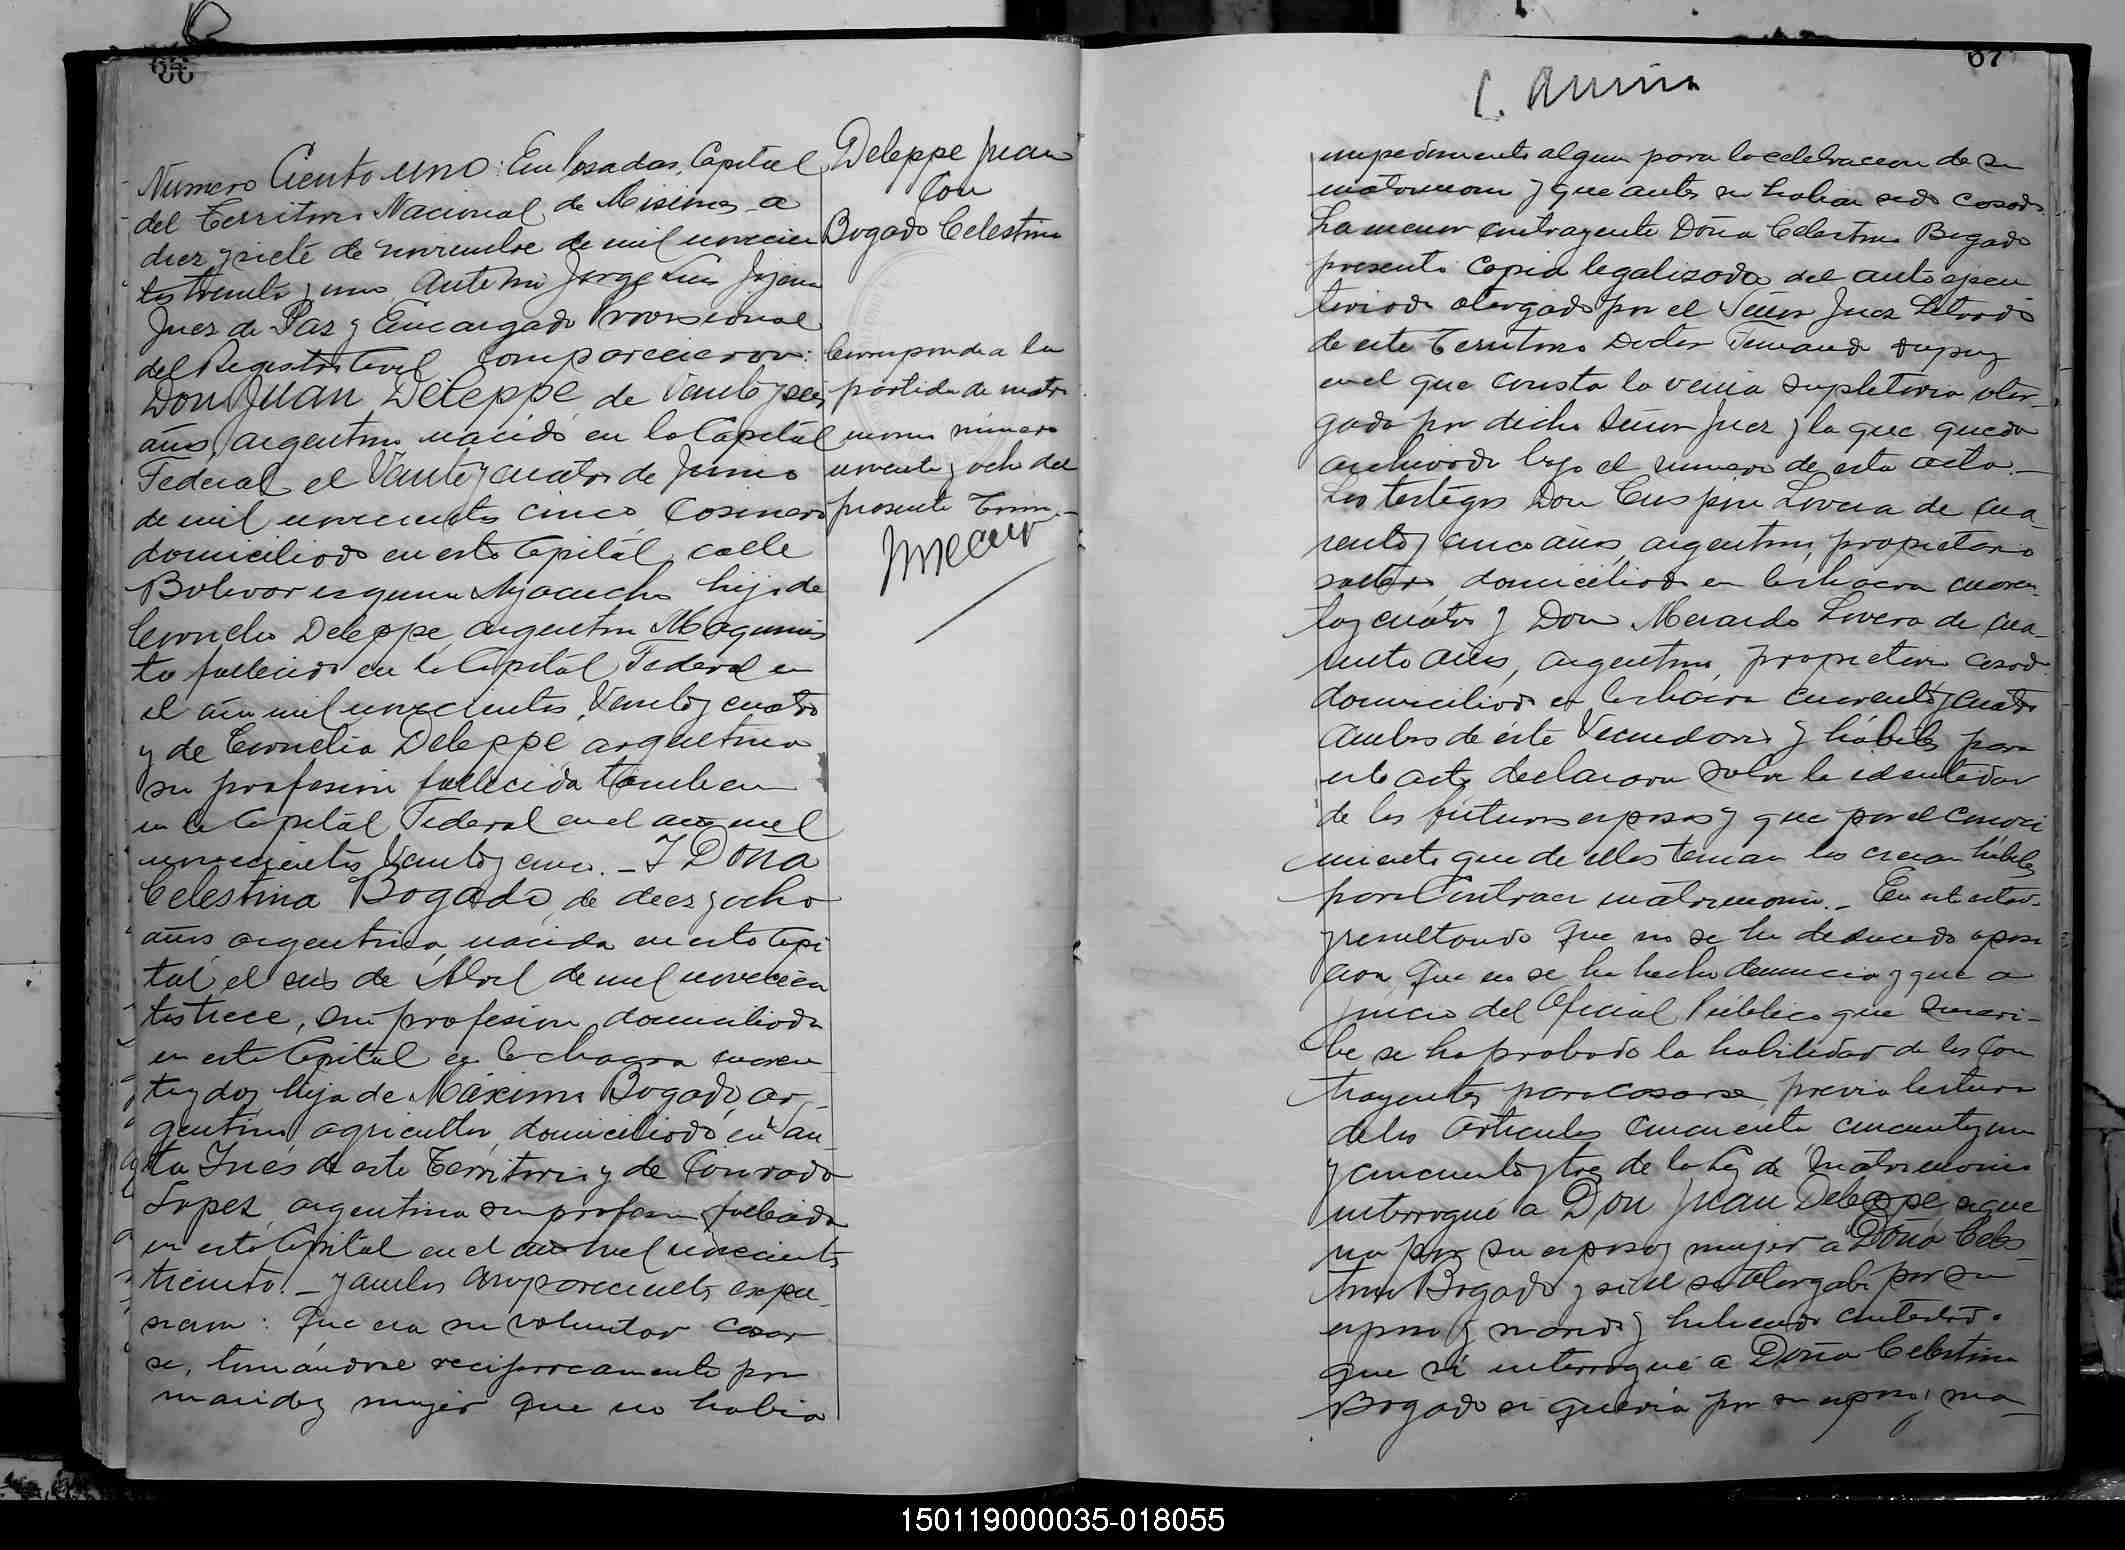 66
Numero Ciento uno: En Posadas, Capital
del Territorio Nacional de Misiones a
diez y siete de noviembre de mil novecien
tos treinta y uno Ante mi Jorge Luis
Juez de Paz y Encargado Provisional
del Registro Civil comparecieron:
Don Juan Deleppe de Veinte y seis
años, argentino nacido en la Capital
Federal el Veinte y cuatro de Junio
de mil novecientos cinco, Cosinero
domiciliado en esta Capital, calle
Bolivar esquina Ayacucho hijo de
Cornelio Deleppe, argentino Maquinis
ta fallecido en la Capital Federal en
el año mil novecientos Veinte y cuatro
y de Cornelia Deleppe, argentina
sin profesion fallecida tambien
en la Capital Federal en el año mil
novecientos Veinte y cinco. - Y Doña
Celestina Bogado, de diez y ocho
años argentina, nacida en esta Capi
tal, el seis de Abril de mil novecien
tos trece, sin profesion, domiciliada
en esta Capital en la chacra cuaren
ta y dos, hija de Máximo Bogado, ar-
gentino, agricultor, domiciliado en San
ta Inés de este Territorio y de Conrada
Lopez, argentina sin profesion, fallecida
en esta Capital en el año mil novecientos
treinta. - Y ambos comparecientes expu-
sieron: Que era su voluntad casar
se, tomándose reciprocamente por
marido y mujer que no habia
Deleppe Juan
Con
Bogado Celestina
Corresponde a la
partida de matri
monio número
noventa y ocho del
presente Tomo.-
67
impedimento alguno para la celebracion de su
matrimonio y que antes no habian sido casados
La menor contrayente Doña Celestina Bogado
presentó copia legalizada del auto ejecu
toriado otorgado por el Señor Juez Letrado
de este Territorio Doctor Fernando
en el que consta la venia supletoria otor-
gada por dicho Señor Juez y la que queda
archivada bajo el numero de esta acta.-
Los testigos Don Crispin Lovera de cua-
renta y cinco años, argentino, propietario
soltero, domiciliado en la chacra cuaren
ta y cuatro y Don Merardo Lovera de cua-
renta años, argentino, propietario casado
domiciliado en la chacra cuarenta y cuatro
Ambos de éste Vecindario y hábiles para
este acto, declararon sobre la identidad
de los futuros esposos y que por el conoci
miento que de ellos tenian los creian hábiles
para contraer matrimonio.- En este estado
y resultando Que no se ha deducido oposi
cion Que no se ha hecho denuncia y que a
juicio del Oficial Público que suscri-
be se ha probado la habilidad de los Con
trayentes para casarse, previa lectura
de los articulos cincuenta, cincuenta y uno
y cincuenta y tres de la Ley de Matrimonio
interrogué a Don Juan Deleppe, si que
ria por su esposa y mujer a Doña Celes-
tina Bogado y si él se otorgaba por su
esposo y marido y habiendo contestado
que si interrogué a Doña Celestina
Bogado si queria por su esposo y ma-
150119000035-018055